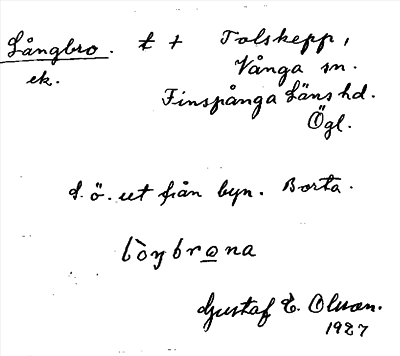 Långbro. t + Tolskepp,
ek. Vånga sn.
Finspånga Läns hd.
Ögl.
d. ö. ut från byn. Borta.
Gustaf E. Olsson.
1927